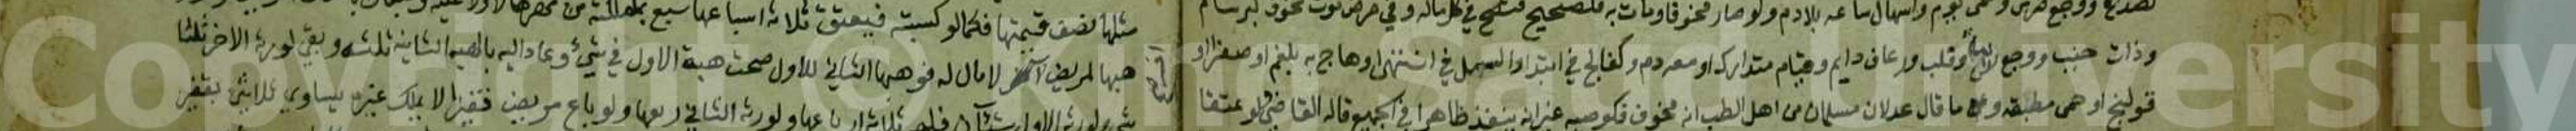 لصداع ووجع ضرس وحمى يوم واسهال ساعة بلا دم ولو صار مخوفا ومات به فكصحيح وفي مرض موت مخوف كبرسام
وذات جنب ووجع رئة وقلب ورعاف دايم وقيام متدارك او معه دم وكفالج في ابتداء والسل في انتهاء او هاج به بلغم او صفراء او
قولنج او حمى مطبقة وما قال عدلان مسلمان من اهل الطب انه مخوف فكوصية غير انه ينفذ ظاهرا في الجميع قاله القاضي ولو عتقا
مثلها نصف قيمتها فكما لو كسبته فيعتق ثلاثة اسباعها
وهبها لمريض آخر لا مال له فوهبها الثاني للاول صحت هبة الاول في شيء وعاد اليه بالهبة الثانية ثلثه وبقي لورثة الآخر ثلثا
شيء ولورثة الاول شيئان فلهم ثلاثة ارباعها ولورثة الثاني ربعها ولو باع مريض قفيزا لا يملك غيره يساوي ثلاثين بقفيز
Copyright © King Saud University